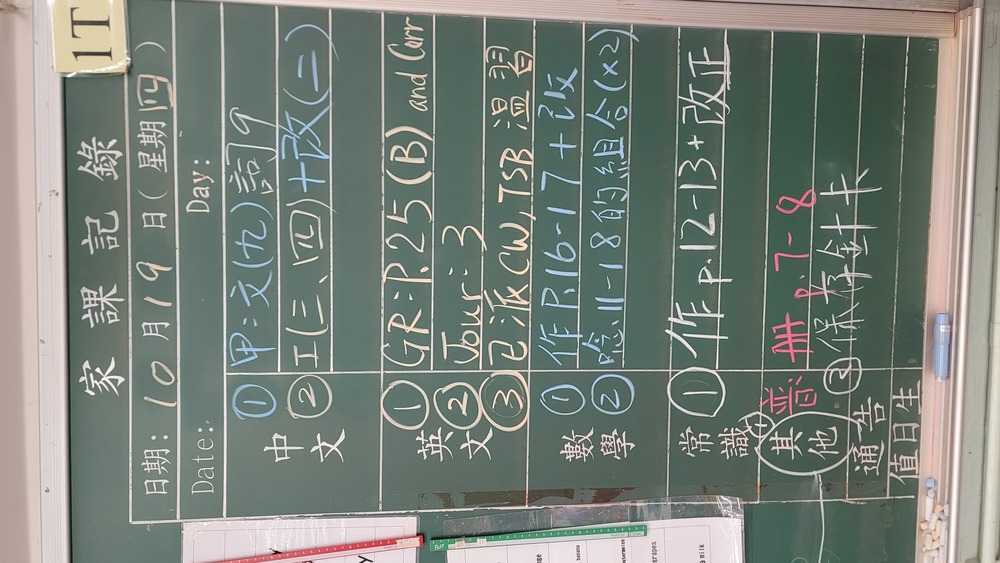 1T
家課記錄
日期: 10月19日(星期四)
Date: Day:
中文
① 甲:文(九)詞9
② 工(三、四)+改(二)
英文
① GR:P.25(B) and Corr
② Jour:3
③ 已派CW,TSB 溫習
數學
① 作P.16-17+改
② 唸11-18的組合(x2)
常識
① 作p.12-13+改正
其他
① 普:冊 p.7-8
② 保存針卡
通告
值日生